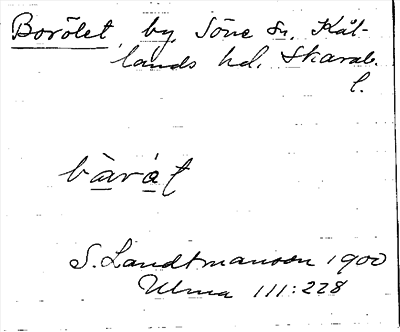 Borölet, by, Söne sn. Kål-
lands hd. Skarab.
l.
bàrát
S. Landtmanson 1900
Ulma 111:228